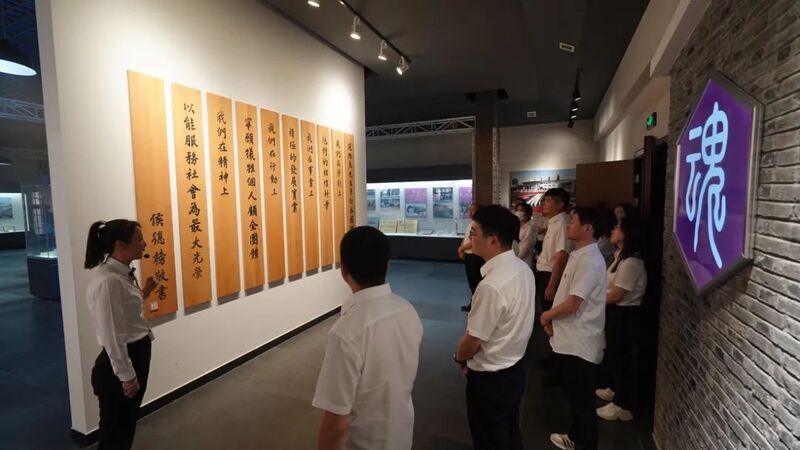 我們在原則上
絕對的相信科學
我們在事業上
積極的發展實業
我們在行動上
寧願犧牲個人顧全團體
我們在精神上
以能服務社會為最大光榮
侯德榜敬書
魂